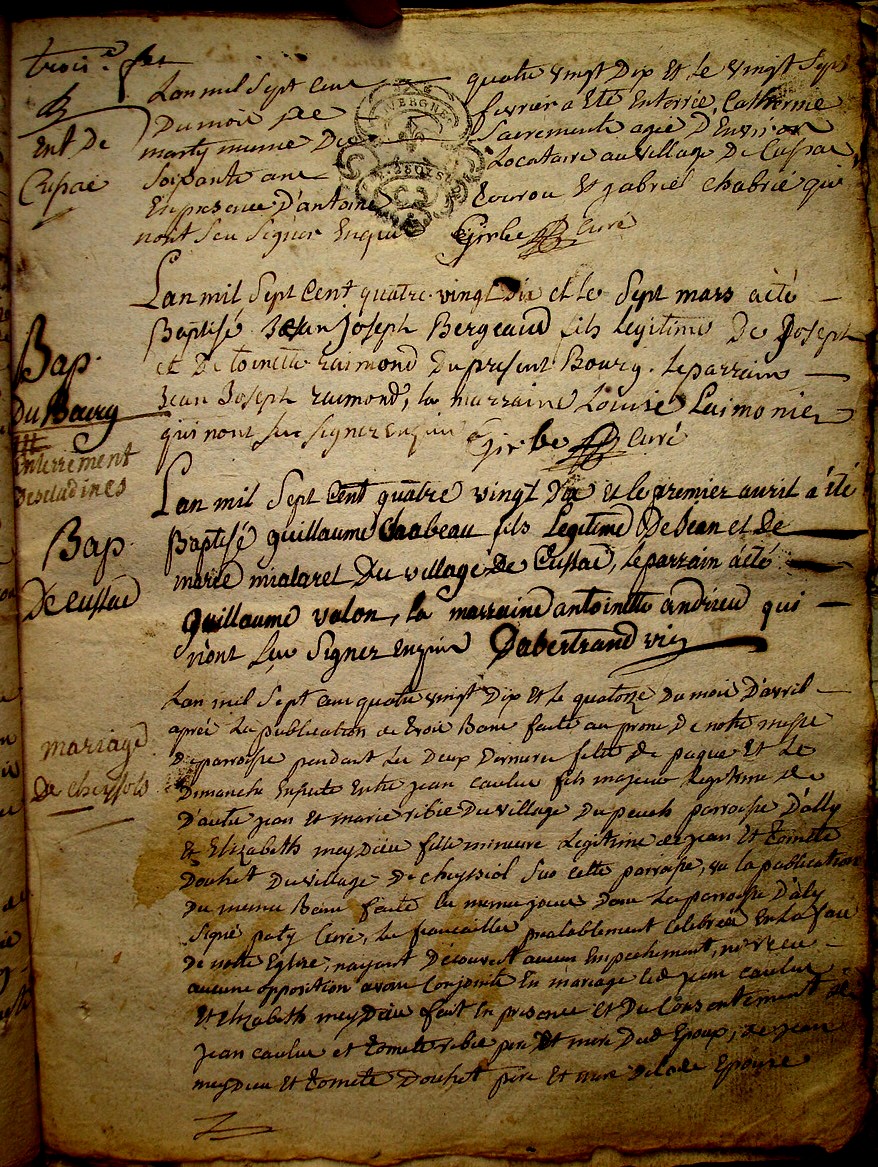 trois.e f.et
Ent De
Cussac
Lan mil Sept Cent quatre vingt Dix Et le vingt Sept
Du mois De fevrier a Eté Enterrée, Catherine
marty munie De Sacrements agée D'Environ
Soixante ans Locataire au village De Cussac,
En presence D'antoine Et gabriel chabrié qui
n'ont Seu Signer Enquis Girbe Curé
AUVERGNE
Bap.
Du Bourg
Lan mil Sept Cent quatre-vingt Dix et le Sept mars a eté
Baptisé Jean Joseph Bergeaud fils legitime De Joseph
et De toinette raimond Du present Bourg. le parrain
Jean Joseph raimond, la marraine Louise Laimonier
qui n'ont seu signer Enquis Girbe Curé
Enterrement
Desclidines
Bap.
De cussac
Lan mil Sept Cent quatre vingt dix et le premier avril a été
Baptisé guillaume Chabeau fils Legitime De Jean et de
marie mialaret Du village De Cussac, le parrain a eté
Guillaume valon, la marraine antoinette andrieu qui
n'ont Seu Signer Enquis Dabertrand vic
mariage
De cheyssiols
Lan mil Sept Cent quatre vingt Dix Et le quatorze Du mois D'avril
aprés La publication de trois Bans faite au prone De notre messe
De parroisse pendant les Deux Dernieres fetes de paque Et Le
Dimanche Ensuite Entre jean caulus fils majeur Legitime de
D'autre jean Et marie ribie Du village Du peuch parroisse D'ally
Et Elizabeth meydieu fille mineure Legitime de jean Et tomete
Douhet Du village De cheyssiol Sus cette parroisse, vu la publication
Du meme Bans faite les memes jours Dans La parroisse D'ally
Signé paty Curé, les fiancailles prealablement Celebrées En La face
De notre Eglise, n'ayant Decouvert aucun Empechement, ni reçeu
aucune opposition avons Conjoints En mariage led. jean caulus
Et Elizabeth meydieu fait En presence Et Du Consentement de
jean caulus et tomete ribie pere Et mere Dud. Epoux, de jean
meydieu Et tomete Douhet pere Et mere de lade. Epouse